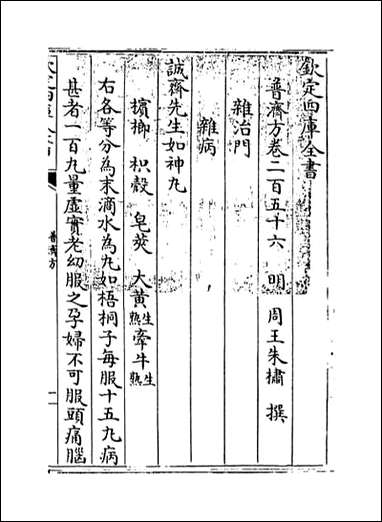 欽定四庫全書
普濟方卷二百五十六 明 周王朱橚 撰
雜治門
雜病
誠齋先生如神丸
檳榔 枳殼 皂莢 大黃生熟 牽牛生熟
右各等分為末滴水為丸如梧桐子每服十五丸病
甚者一百丸量虛實老幼服之孕婦不可服頭痛腦
普濟方
一